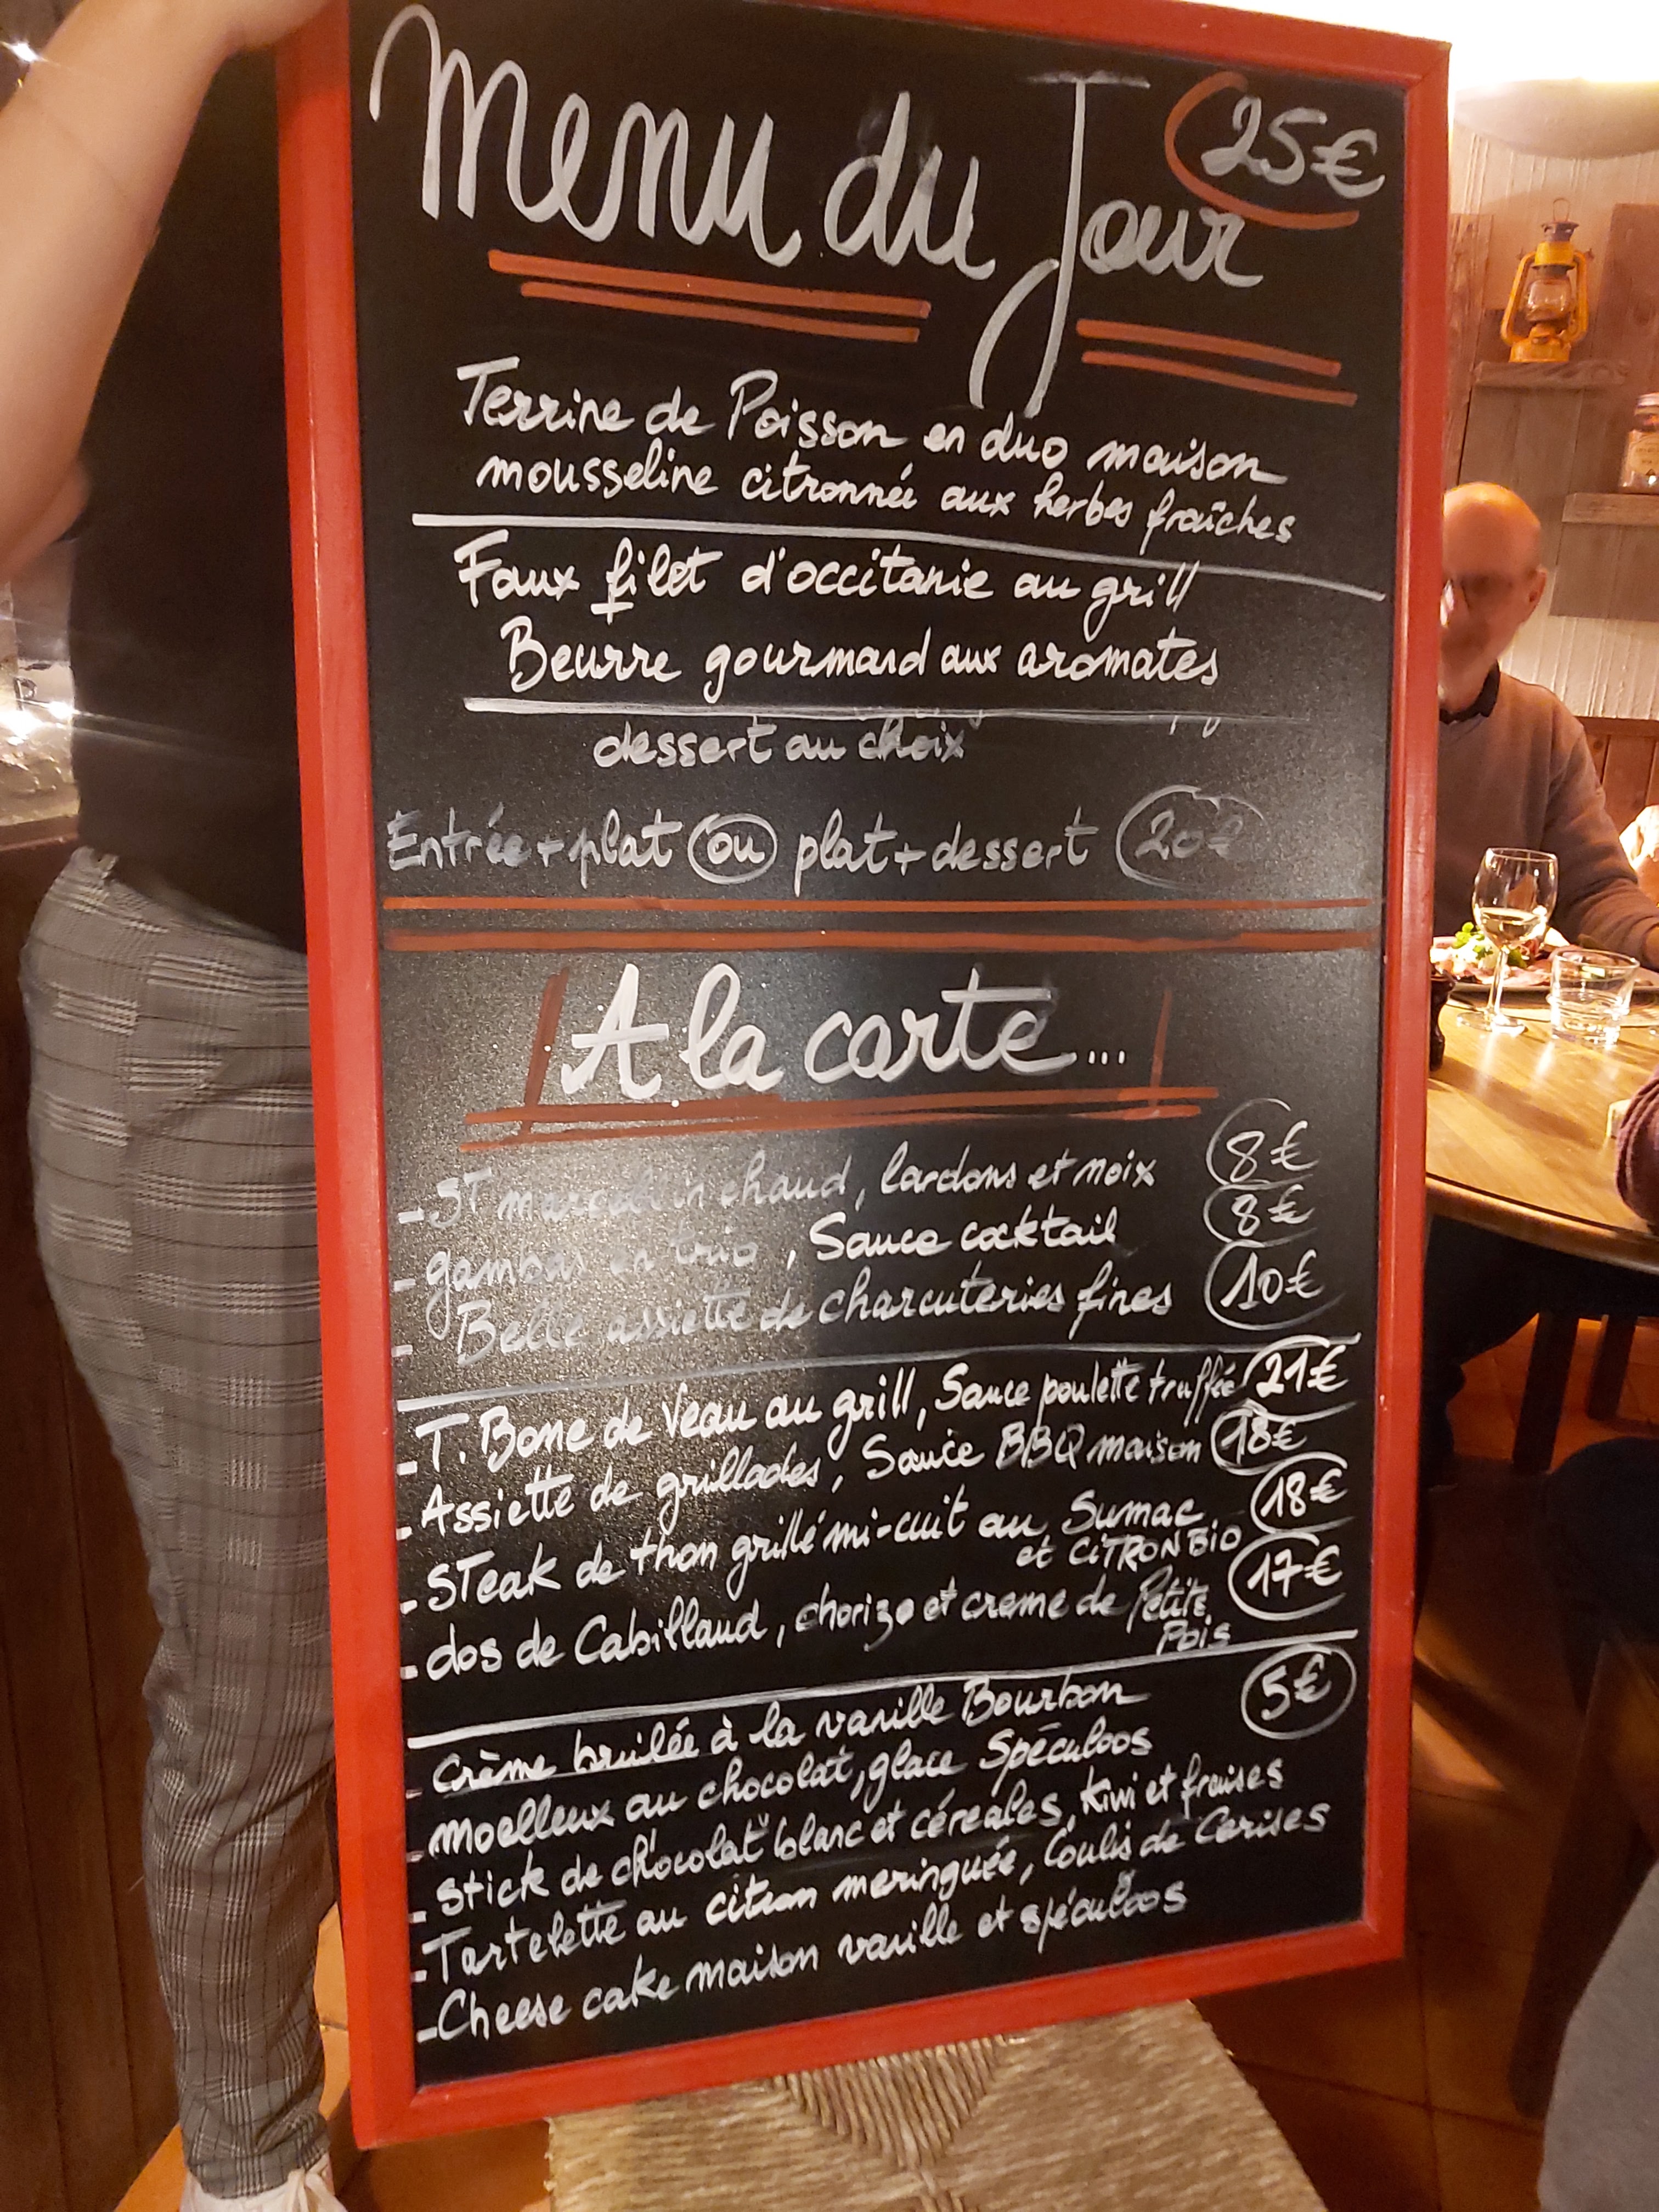 Menu du Jour 25€
Terrine de Poisson en duo maison
mousseline citronnée aux herbes fraîches
Faux filet d'occitanie au grill
Beurre gourmand aux aromates
dessert au choix
Entrée + plat ou plat + dessert 20€
A la carte...
- ST marcellin chaud, lardons et noix 8€
- gambas en trio, Sauce cocktail 8€
- Belle assiette de charcuteries fines 10€
- T. Bone de Veau au grill, Sauce poulette truffée 21€
- Assiette de grillades, Sauce BBQ maison 18€
- STeak de thon grillé mi-cuit au Sumac 18€
et CiTRON BiO
- dos de Cabillaud, chorizo et creme de Petits 17€
Pois
- Crème brulée à la vanille Bourbon 5€
- moelleux au chocolat, glace Spéculoos
- Stick de chocolat blanc et céréales, Kiwi et fraises
- Tartelette au citron meringuée, Coulis de Cerises
- Cheese cake maison vanille et spéculoos